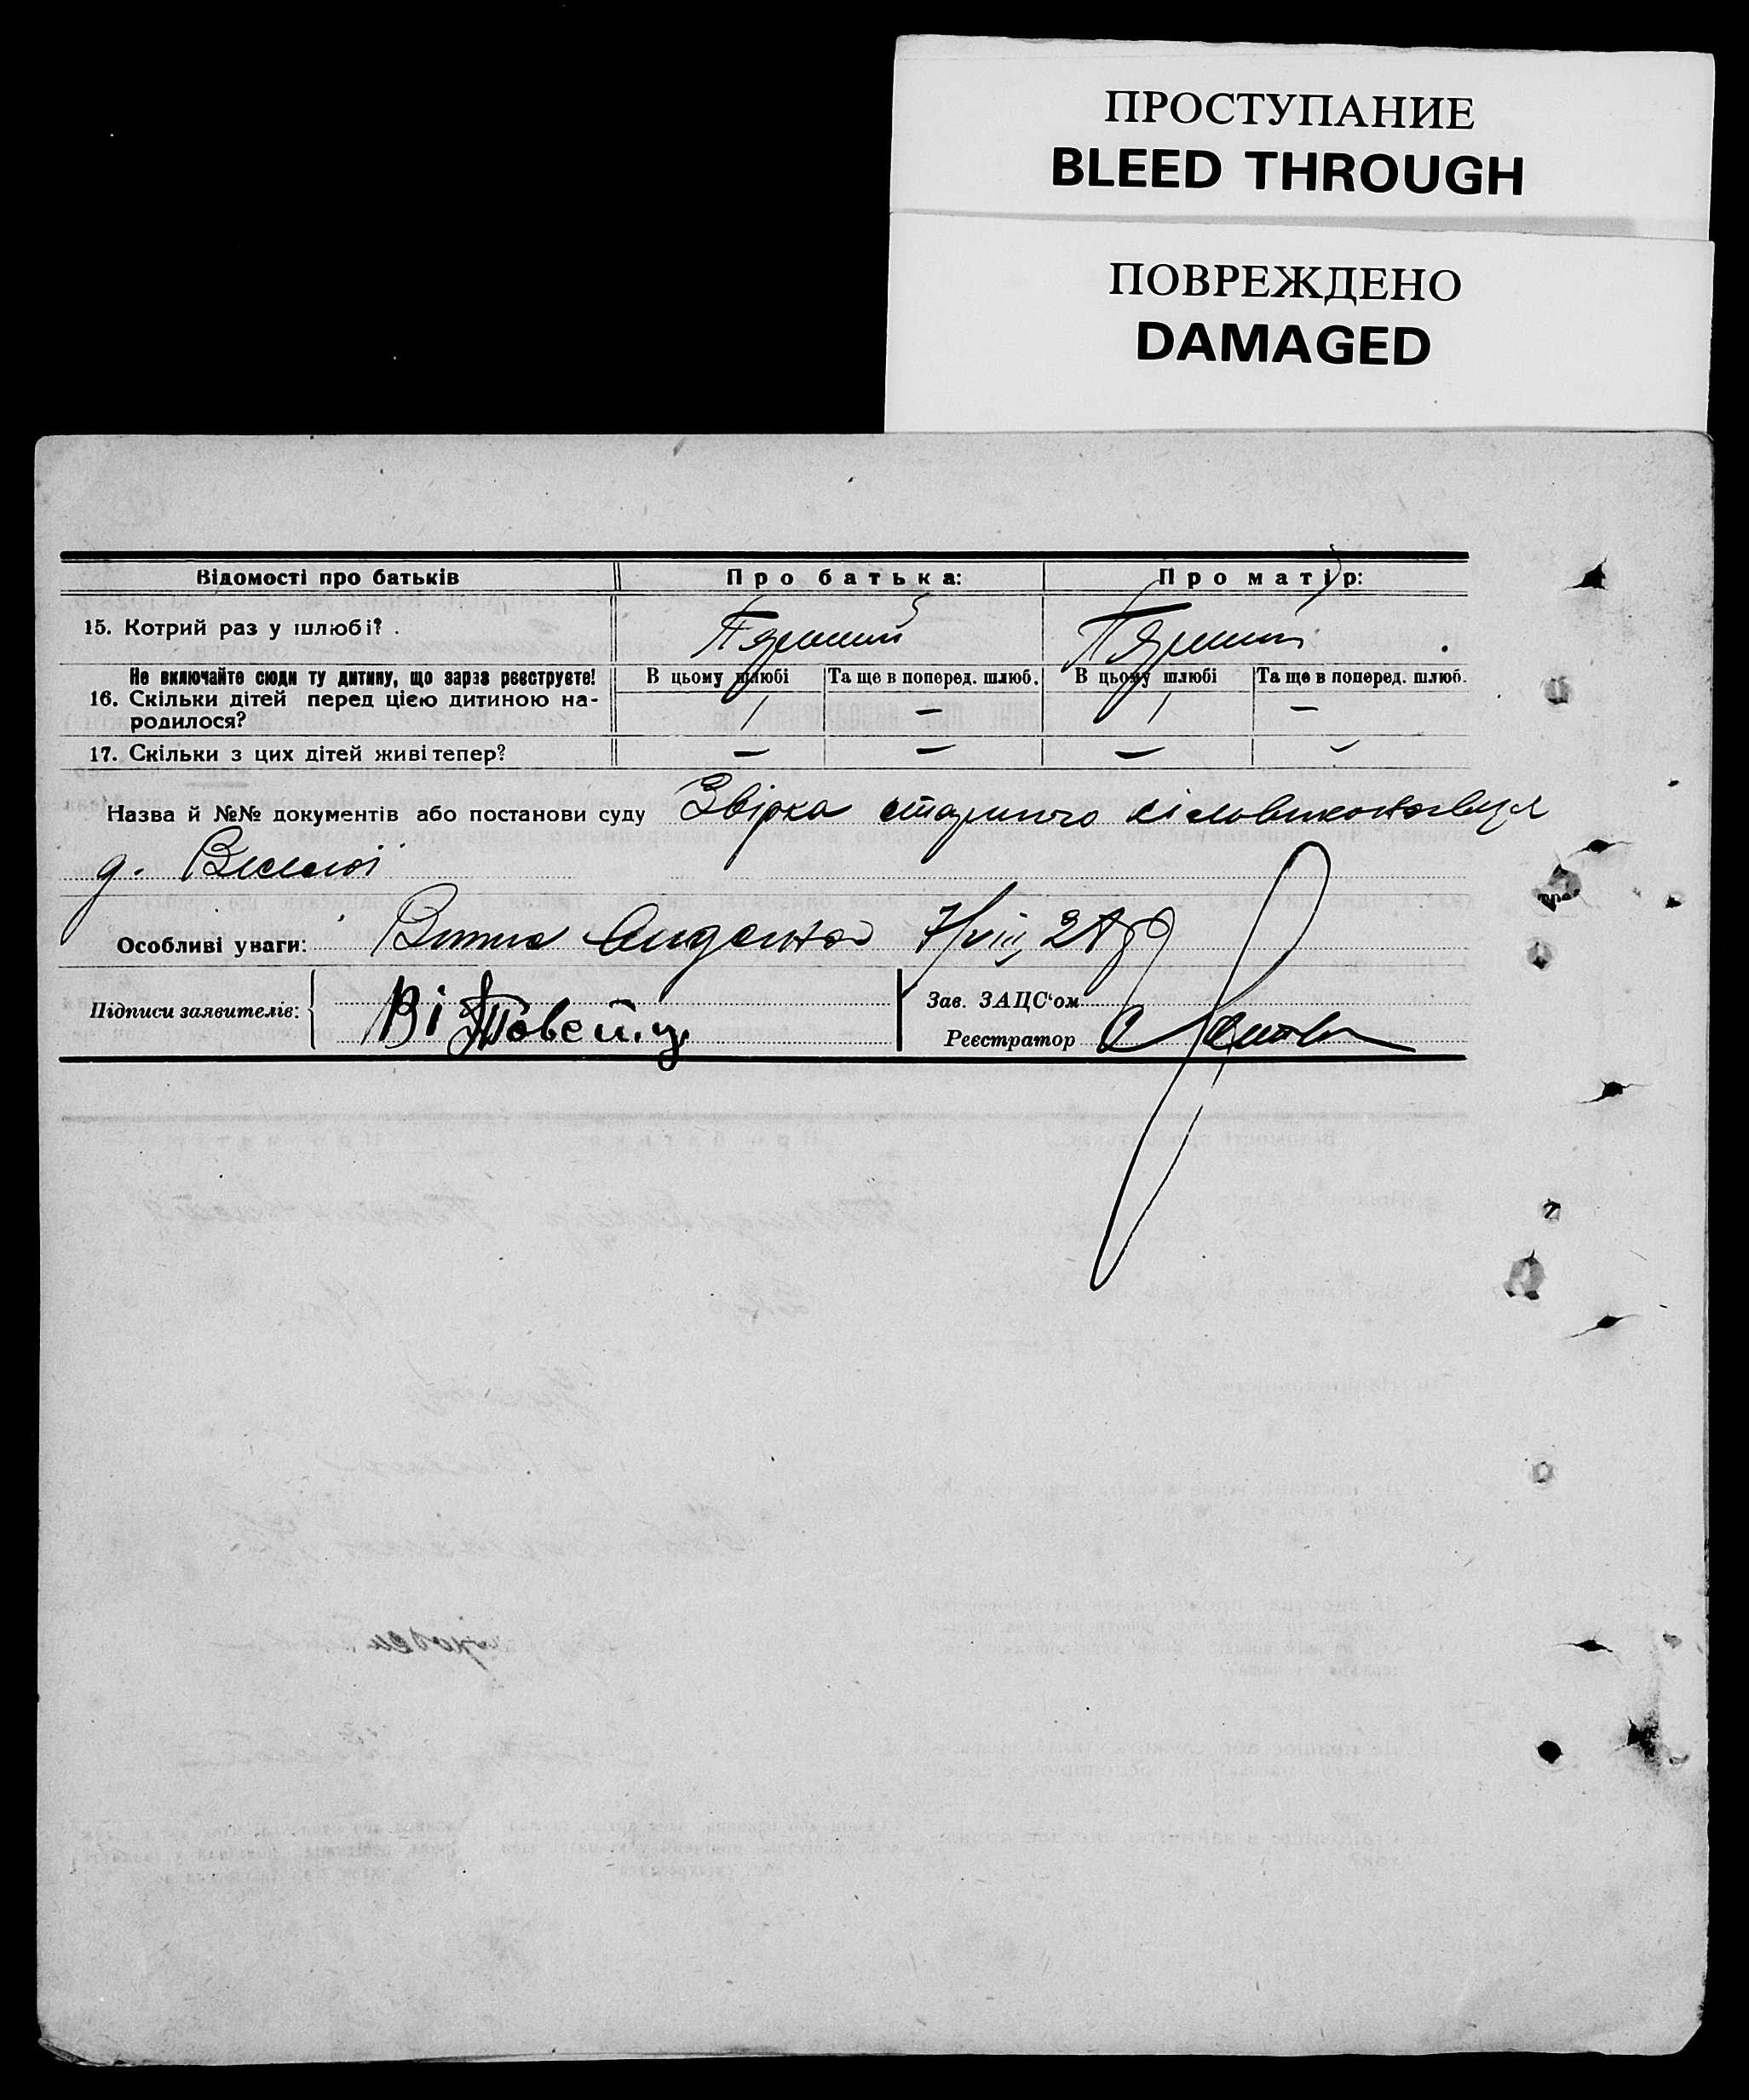 ПРОСТУПАНИЕ
BLEED THROUGH
ПОВРЕЖДЕНО
DAMAGED
Відомості про батьків Про батька: Про матір:
15. Котрий раз у шлюбі? . Перший Перший
Не включайте сюди ту дитину, що зараз реєструєте! В цьому шлюбі Та ще в поперед. шлюб. В цьому шлюбі Та ще в поперед. шлюб.
16. Скільки дітей перед цією дитиною на- 1 — 1 —
родилося?
17. Скільки з цих дітей живі тепер? — — — —
Назва й №№ документів або постанови суду Звірка старшого сільвиконавця
д. Веселої
Особливі уваги: 7/VIII
Підписи заявителів: Зав. ЗАЦС'ом
Ві Реєстратор